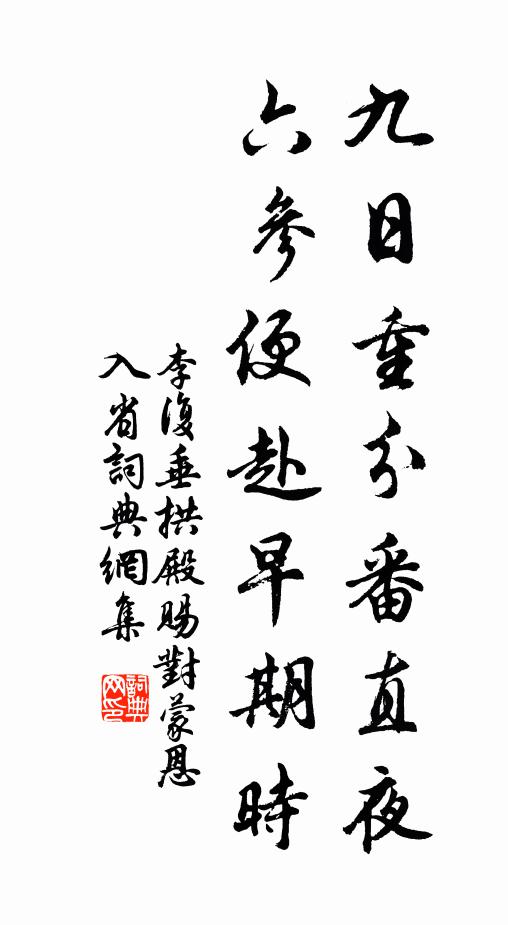 九日重分番直夜
六參便赴早期時
李復垂拱殿賜對蒙恩
入省詞典網集
詞典
网印